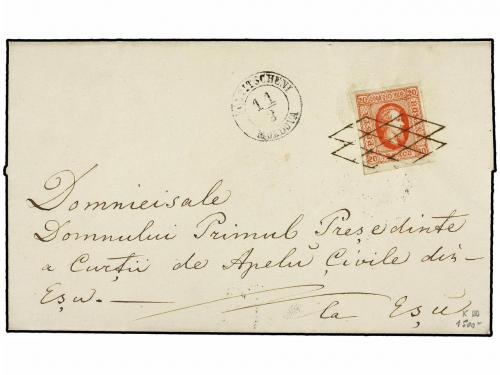 11
MOLDOVA
20 20
20
Domnieisale
Domnului Primul Președinte
a Curții de Apelŭ Çivile din
Eșu. —
la Eșŭ
K III
1500-